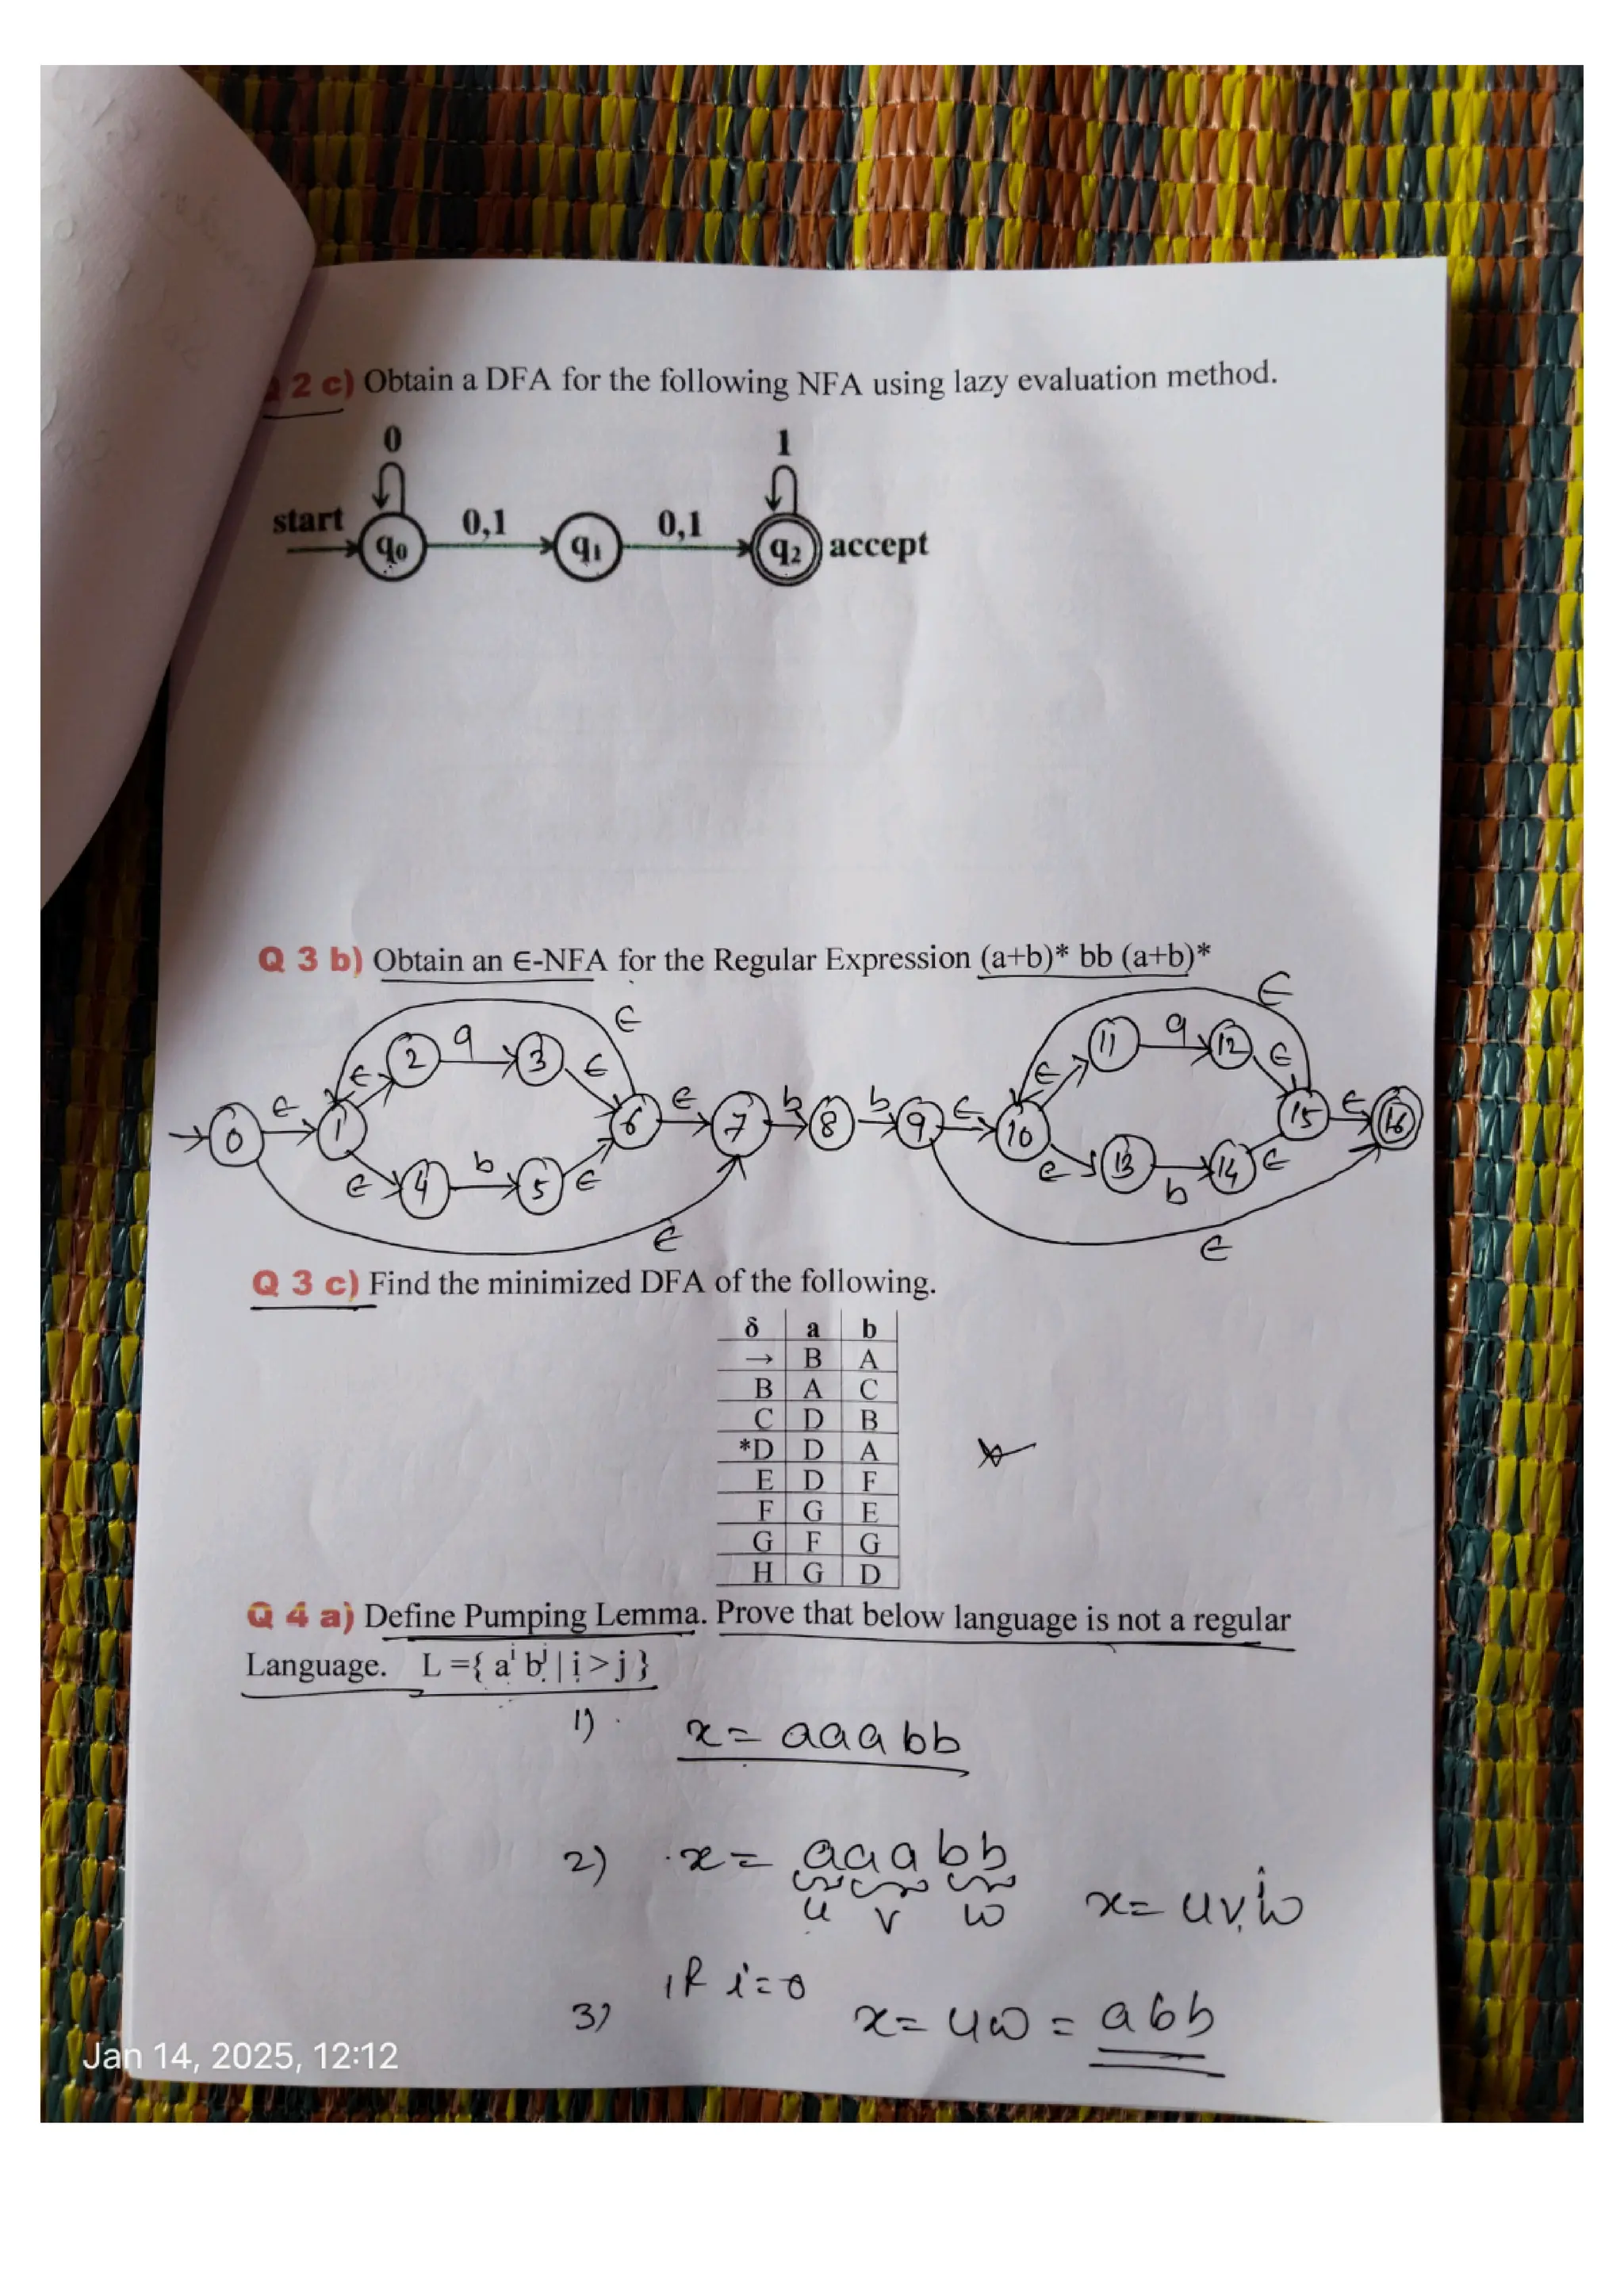 2 c) Obtain a DFA for the following NFA using lazy evaluation method.
0 1
start 0,1 0,1
q0 q1 q2 accept
Q 3 b) Obtain an ∈-NFA for the Regular Expression (a+b)* bb (a+b)*
∈ ∈
2 a 3 11 a 12
∈ ∈ ∈ ∈
0 ∈ 1 6 ∈ 7 b 8 b 9 ∈ 10 15 ∈ 16
∈ 4 b 5 ∈ ∈ 13 b 14 ∈
∈ ∈
Q 3 c) Find the minimized DFA of the following.
δ a b
→ B A
B A C
C D B
*D D A
E D F
F G E
G F G
H G D
Q 4 a) Define Pumping Lemma. Prove that below language is not a regular
Language. L ={ aⁱ bʲ | i > j }
1) x = aaabb
2) x = aaabb
u v w x = uvⁱw
if i=0
3) x = uw = abb
Jan 14, 2025, 12:12